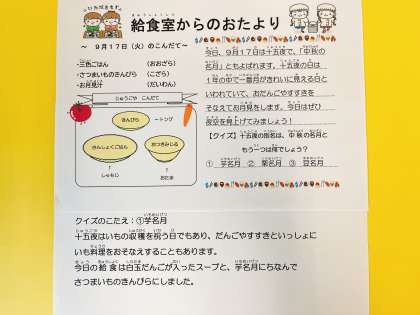 いただきます。
給食室からのおたより
～ 9月17日（火）のこんだて～
・三色ごはん （おおざら）
・さつまいものきんぴら （こざら）
・お月見汁 （だいわん）
じゅうごや こんだて
きんぴら
←トング
さんしょくごはん
おつきみじる
↑
しゃもじ
↑
おたま
今日、9月17日は十五夜で、「中秋の
名月」ともよばれます。十五夜の日は
1年の中で一番月がきれいに見える日と
いわれていて、おだんごやすすきを
そなえてお月見をします。今日はぜひ
夜空を見上げてみましょう！
【クイズ】十五夜の別名は、中秋の名月と
もう一つは何でしょう？
① 芋名月 ② 菊名月 ③ 豆名月
クイズのこたえ：①芋名月
十五夜はいもの収穫を祝う日でもあり、だんごやすすきといっしょに
いも料理をおそなえすることもあります。
今日の給食は白玉だんごが入ったスープと、芋名月にちなんで
さつまいものきんぴらにしました。